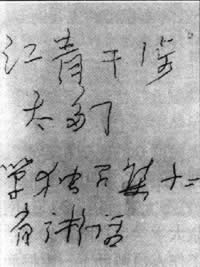 江青干涉
太多了
单独召集十二
省讲话